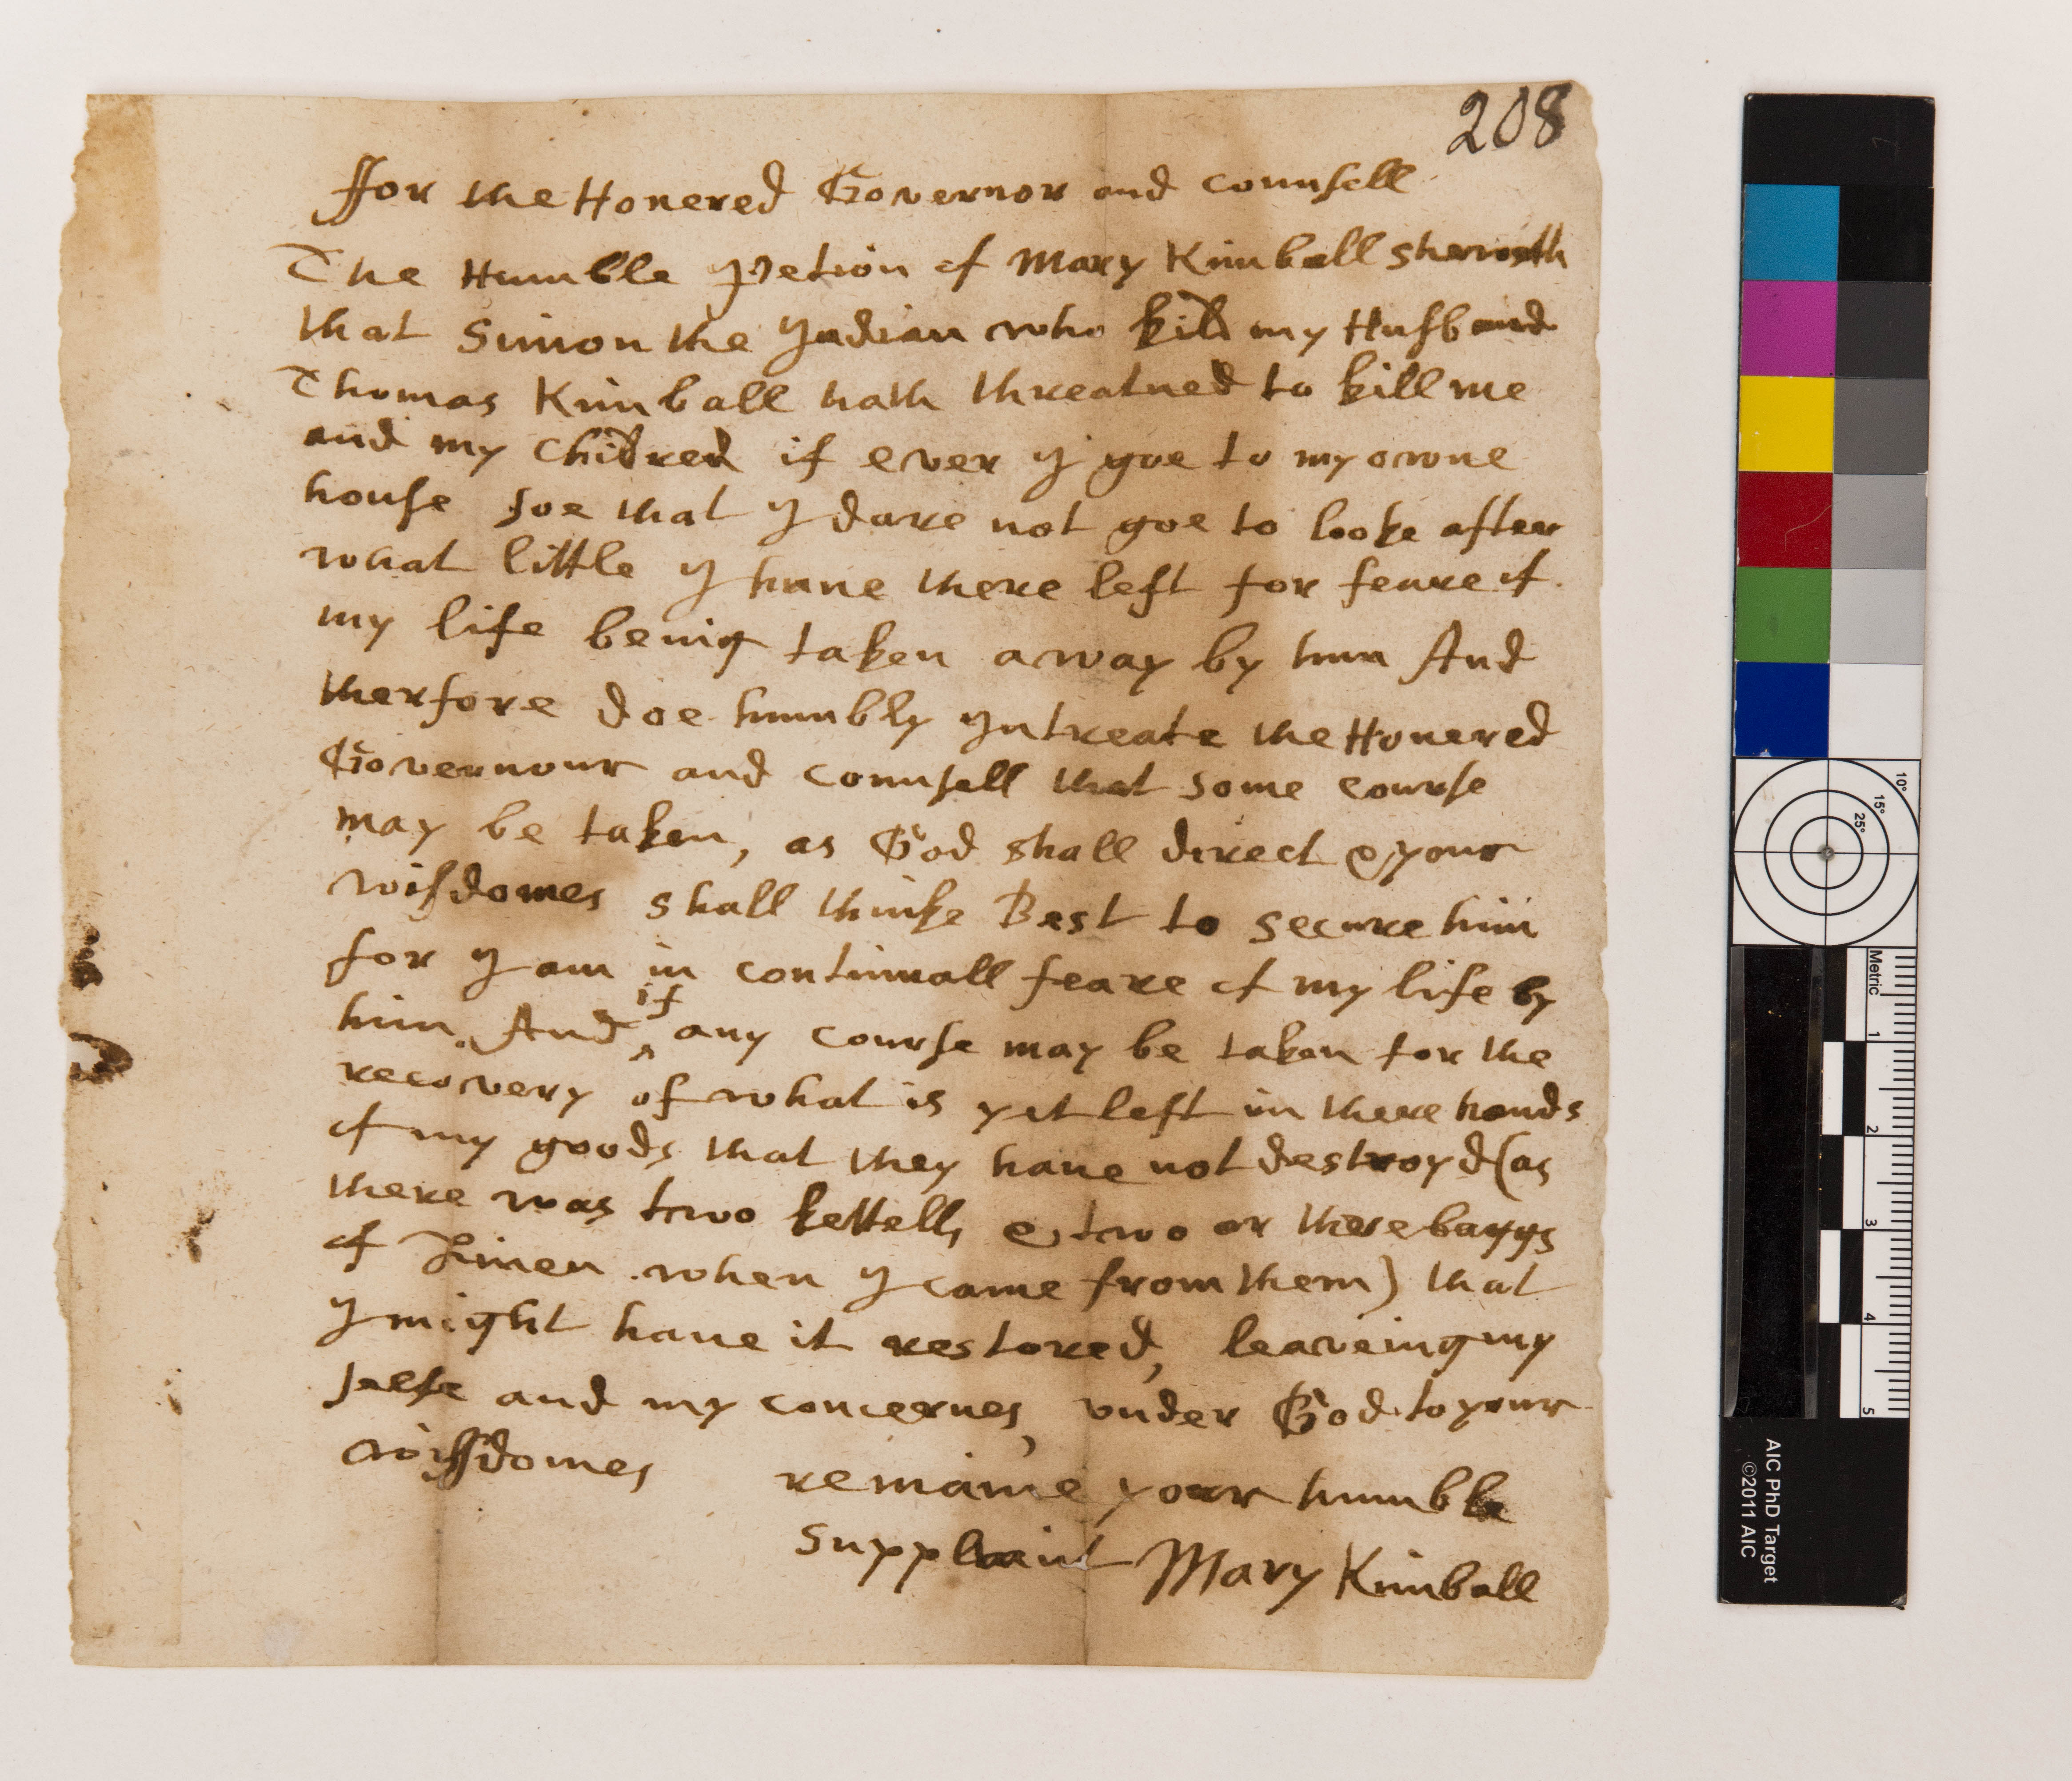 208
ffor the Honered Governor and counsell
The Humble Petion of Mary Kimball sheweth
that Simon the Indian who kild my Husband
Thomas Kimball hath threatned to kill me
and my Children if ever I goe to my owne
house soe that I dare not goe to looke after
what little I haue there left for feare of
my life being taken away by him And
therfore doe humbly Intreate the Honered
Governour and counsell that some course
may be taken, as God shall direct & your
wisdomes shall thinke Best to secure him
for I am in continuall feare of my life by
him. And if any course may be taken for the
recovery of what is yet left in there hands
of my goods that they haue not destroyd (as
there was two kettells & two or three baggs
of Linen when I came from them) that
I might haue it restored, leaveing my
selfe and my concernes, vnder God to your
wissdomes remaine your humble
Suppliant Mary Kimball
10°
15°
25°
Metric
1
2
3
4
5
AIC PhD Target
©2011 AIC